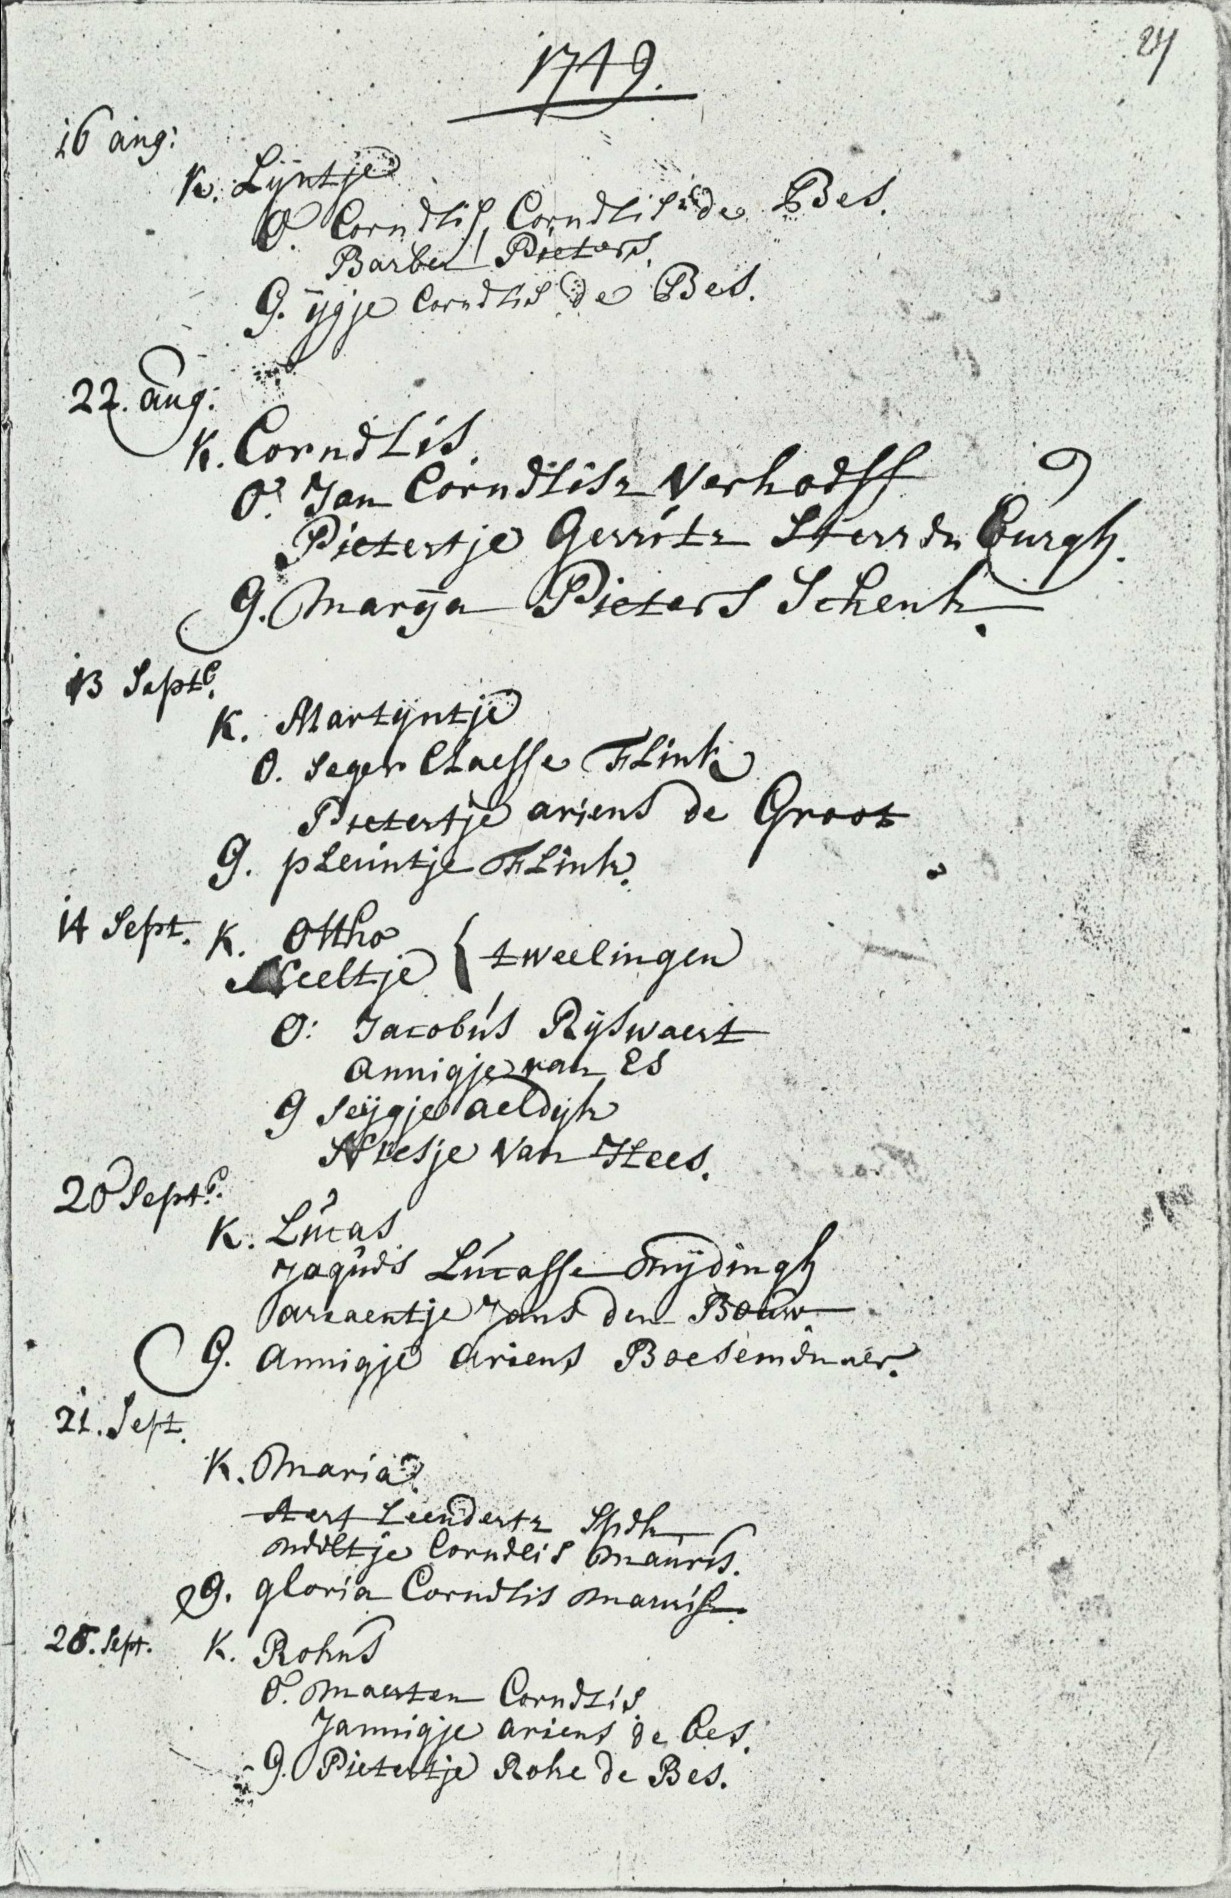 1749.
16 aug:
K. Lyntje
O. Cornelis Cornelisz de Bes.
Barber Pieters.
G. ijgje Cornelis de Bes.
22. aug:
K. Cornelis.
O. Jan Cornelisz Verhoeff
Pietertje Gerritz Sterrenburgh.
G. Marya Pieters Schenk.
13 Septb.
K. Martyntje
O. Seger Claesse Flink
Pietertje ariens de Groot
G. pleuntje Flink.
14 Sept. K. Ottho
Neeltje { tweelingen
O: Jacobus Ryswaert
annigje van Es
G Seijgje aeldyk
Niesje van Hees.
20 Septb.
K. Lucas
Lucasse
ariaentje Jans den Bouw
G. annigje ariens
21. Sept.
K. Maria.
Aert Leendertz Spek
Neeltje Cornelis Mauris.
G. gloria Cornelis
Sept. K. Rokus
O. Maerten Cornelis
Jannigje ariens de Bes.
G. Pietertje Roke de Bes.